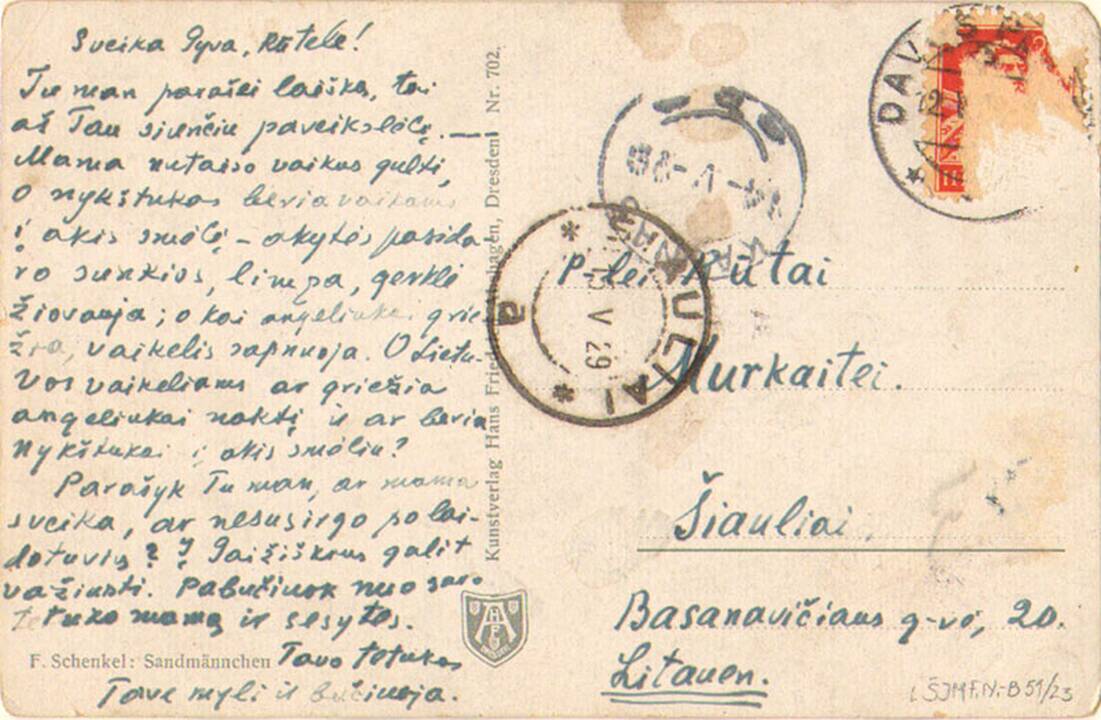 Sveika Gyva, Rūtele!
Tu man parašei laišką, tai
aš Tau siunčiu paveikslėlį. —
Mama nutaiso vaikus gulti,
o nykštukas beria vaikams
į akis smėlį – akytės pasida
ro sunkios, limpa, gerklė
žiovauja; o kai angeliukai grie
žia, vaikelis sapnuoja. O Lietu-
vos vaikeliams ar griežia
angeliukai naktį ir ar beria
Nykštukai į akis smėlio?
Parašyk Tu man, ar mama
sveika, ar nesusirgo po lai-
dotuvių? Į Paižiškius galit
važiuoti. Pabučiuok nuo savo
tetuko mamą ir sesytes.
Tavo tėtukas
Tave myli ir bučiuoja.
F. Schenkel: Sandmännchen
Kunstverlag Hans Fried. Hagen, Dresden Nr. 702.
AHFD
DAV
ŠIAULIAI
V 29
a
P-lei Rūtai
Murkaitei.
Šiauliai
Basanavičiaus g-vė, 20.
Litauen.
ŠJMF.N.-B 51/23